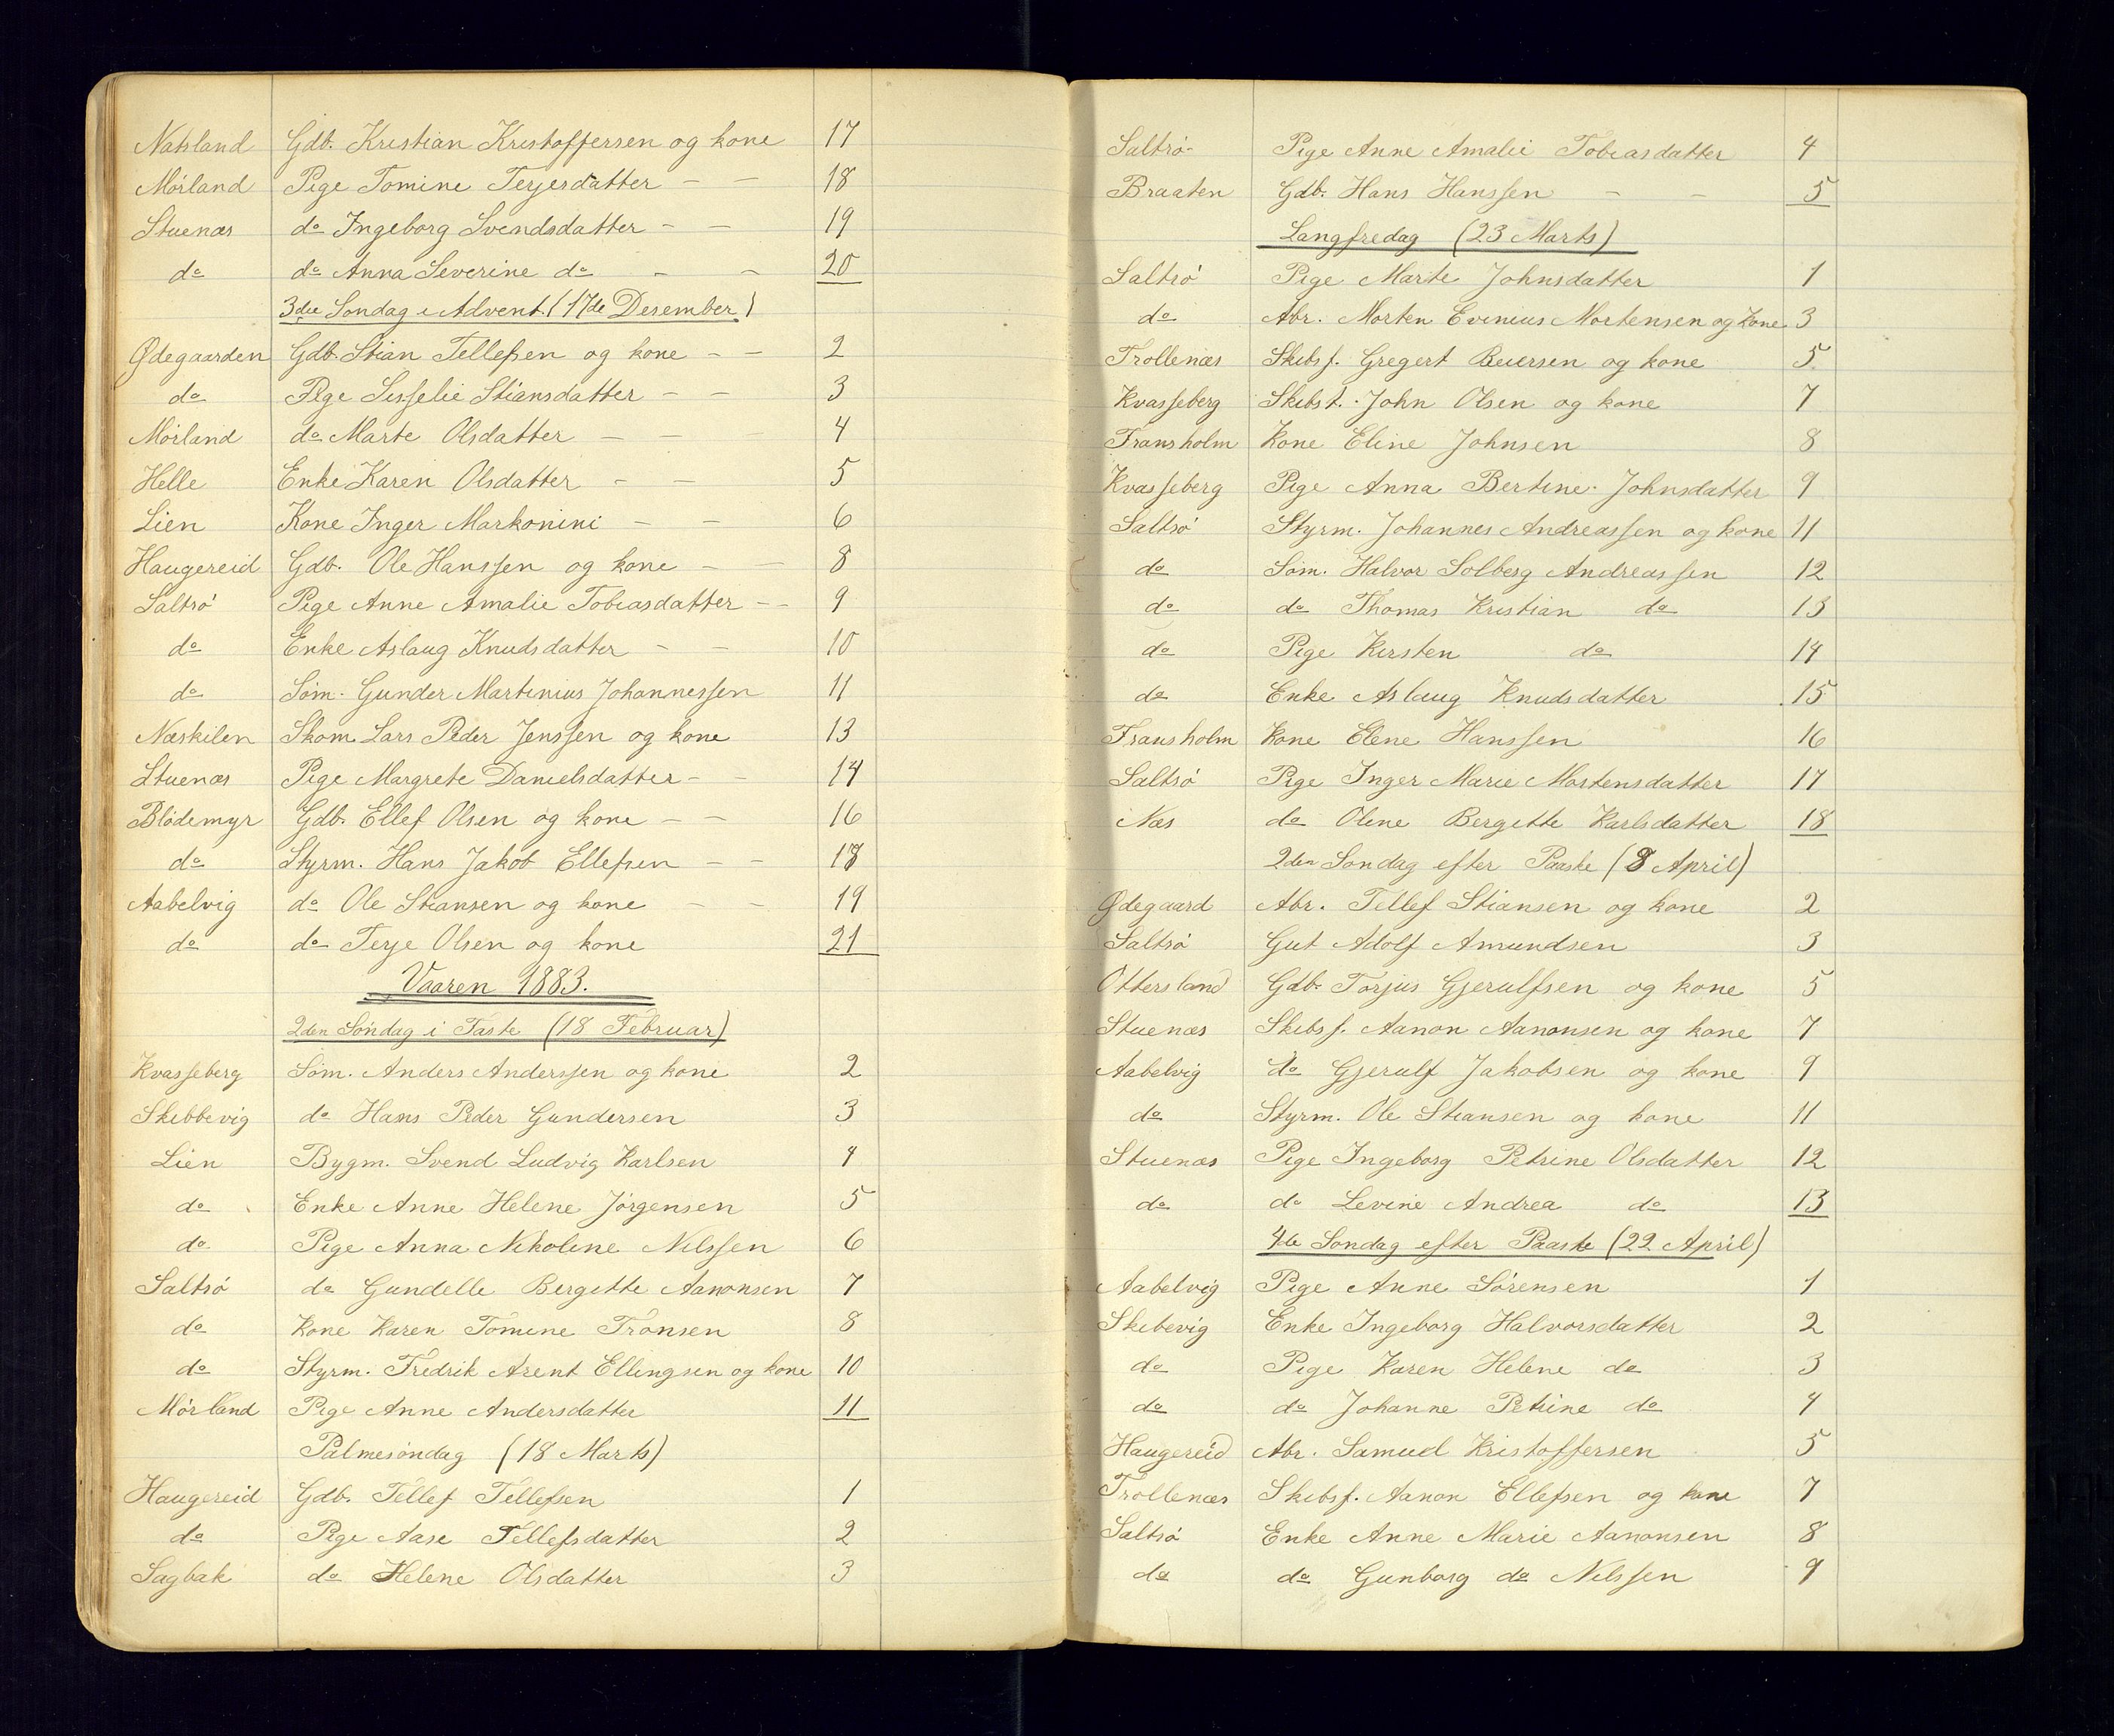 Natsland Gdb. Kristian Kristoffersen og kone 17
Mörland Pige Tomine Terjersdatter — — 18
Stuenæs do Ingeborg Svendsdatter — — 19
do do Anna Severine do — — 20
3die Sondag i Advent. (17de Desember)
Ødegaarden Gdb. Stian Tellefsen og kone — — 2
do Pige Sisselie Stiansdatter — — 3
Mörland do Marte Olsdatter — — — 4
Helle Enke Karen Olsdatter — — 5
Lien Kone Inger Markonini — — 6
Haugereid Gdb. Ole Hanssen og kone — — 8
Saltrö Pige Anne Amalie Tobiasdatter — — 9
do Enke Aslaug Knudsdatter — — 10
do Söm. Gunder Martinius Johannessen 11
Næskilen Skom. Lars Peder Jenssen og kone 13
Stuenæs Pige Margrete Danielsdatter — — 14
Blödemyr Gdb. Ellef Olsen og kone — — 16
do Styrm. Hans Jakob Ellefsen — — 18
Aabelvig do Ole Stiansen og kone — — 19
do do Terje Olsen og kone 21
Vaaren 1883.
2den Söndag i Faste (18 Februar)
Kvasseberg Söm. Anders Anderssen og kone 2
Skibbevig do Hans Peder Gundersen 3
Lien Bygm. Svend Ludvig Karlsen 4
do Enke Anne Helene Jörgensen 5
do Pige Anna Nikoline Nilssen 6
Saltrö do Gundelle Bergitte Aanonsen 7
do Kone Karen Tomine Tronsen 8
do Styrm. Fredrik Arent Ellingsen og kone 10
Mörland Pige Anne Andersdatter 11
Palmesöndag (18 Marts)
Haugereid Gdb. Tellef Tellefsen 1
do Pige Aase Tellefsdatter 2
Sagbak do Helene Olsdatter 3
Saltrö Pige Anne Amalie Tobiasdatter 4
Braaten Gdb. Hans Hanssen — — 5
Langfredag (23 Marts)
Saltrö Pige Marte Johnsdatter 1
do Abr. Morten Evinius Mortensen og Kone 3
Trollenæs Skibsf. Gregert Reiersen og kone 5
Kvasseberg Skibst. John Olsen og kone 7
Fransholm Kone Eline Johnsen 8
Kvasseberg Pige Anna Bertine Johnsdatter 9
Saltrö Styrm. Johannes Andreassen og kone 11
do Söm. Halvor Solberg Andreassen 12
do do Thomas Kristian do 13
do Pige Kirsten do 14
do Enke Aslaug Knudsdatter 15
Fransholm Kone Elene Hanssen 16
Saltrö Pige Inger Marie Mortensdatter 17
Næs do Oline Bergitte Karlsdatter 18
2den Sondag efter Paaske (8 April)
Ødegaard Abr. Tellef Stiansen og kone 2
Saltrö Gut Adolf Amundsen 3
Ottersland Gdb. Torjus Gjerulfsen og kone 5
Stuenæs Skibsf. Aanon Aanonsen og kone 7
Aabelvig do Gjerulf Jakobsen og kone 9
do Styrm. Ole Stiansen og kone 11
Stuenæs Pige Ingeborg Petrine Olsdatter 12
do do Levine Andrea do 13
4de Sondag efter Paaske (22 April)
Aabelvig Pige Anne Sörensen 1
Skibevig Enke Ingeborg Halvorsdatter 2
do Pige Karen Helene do 3
do do Johanne Petrine do 4
Haugereid Abr. Samuel Kristoffersen 5
Trollenæs Skibsf. Aanon Ellefsen og kone 7
Saltrö Enke Anne Marie Aanonsen 8
do do Gunborg do Nilssen 9